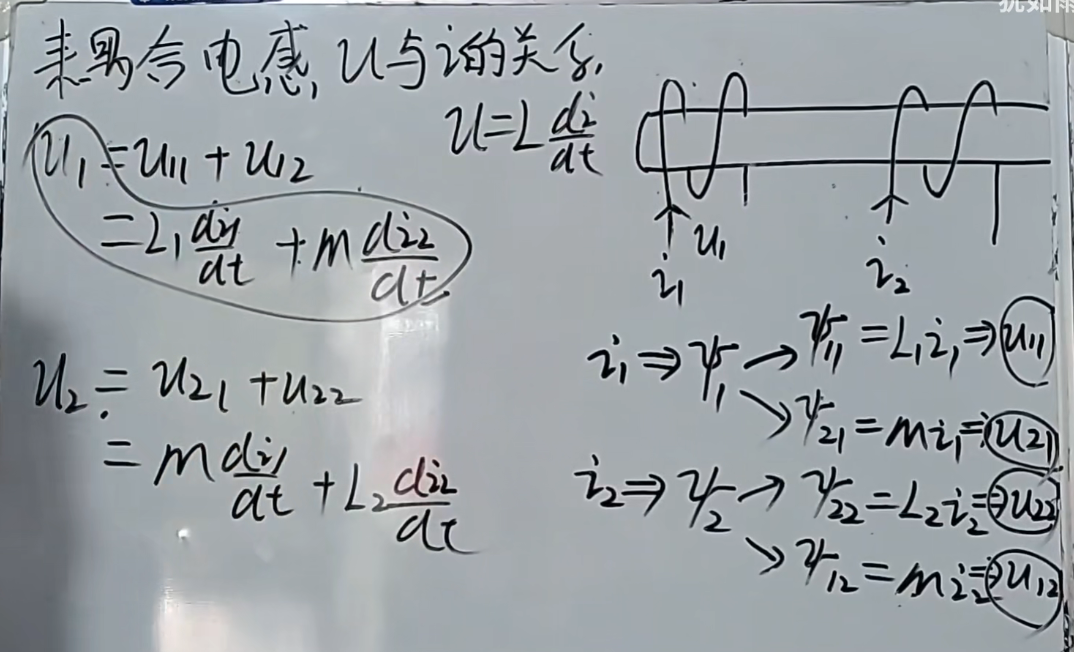 耒禺合电感,U与i的关系,
u=L di/dt
u₁=u₁₁+u₁₂
=L₁ di₁/dt + m di₂/dt
u₂=u₂₁+u₂₂
=m di₁/dt + L₂ di₂/dt
u₁
i₁
i₂
i₁⇒ψ₁→ψ₁₁=L₁i₁⇒u₁₁
↘ψ₂₁=mi₁⇒u₂₁
i₂⇒ψ₂→ψ₂₂=L₂i₂⇒u₂₂
↘ψ₁₂=mi₂⇒u₁₂